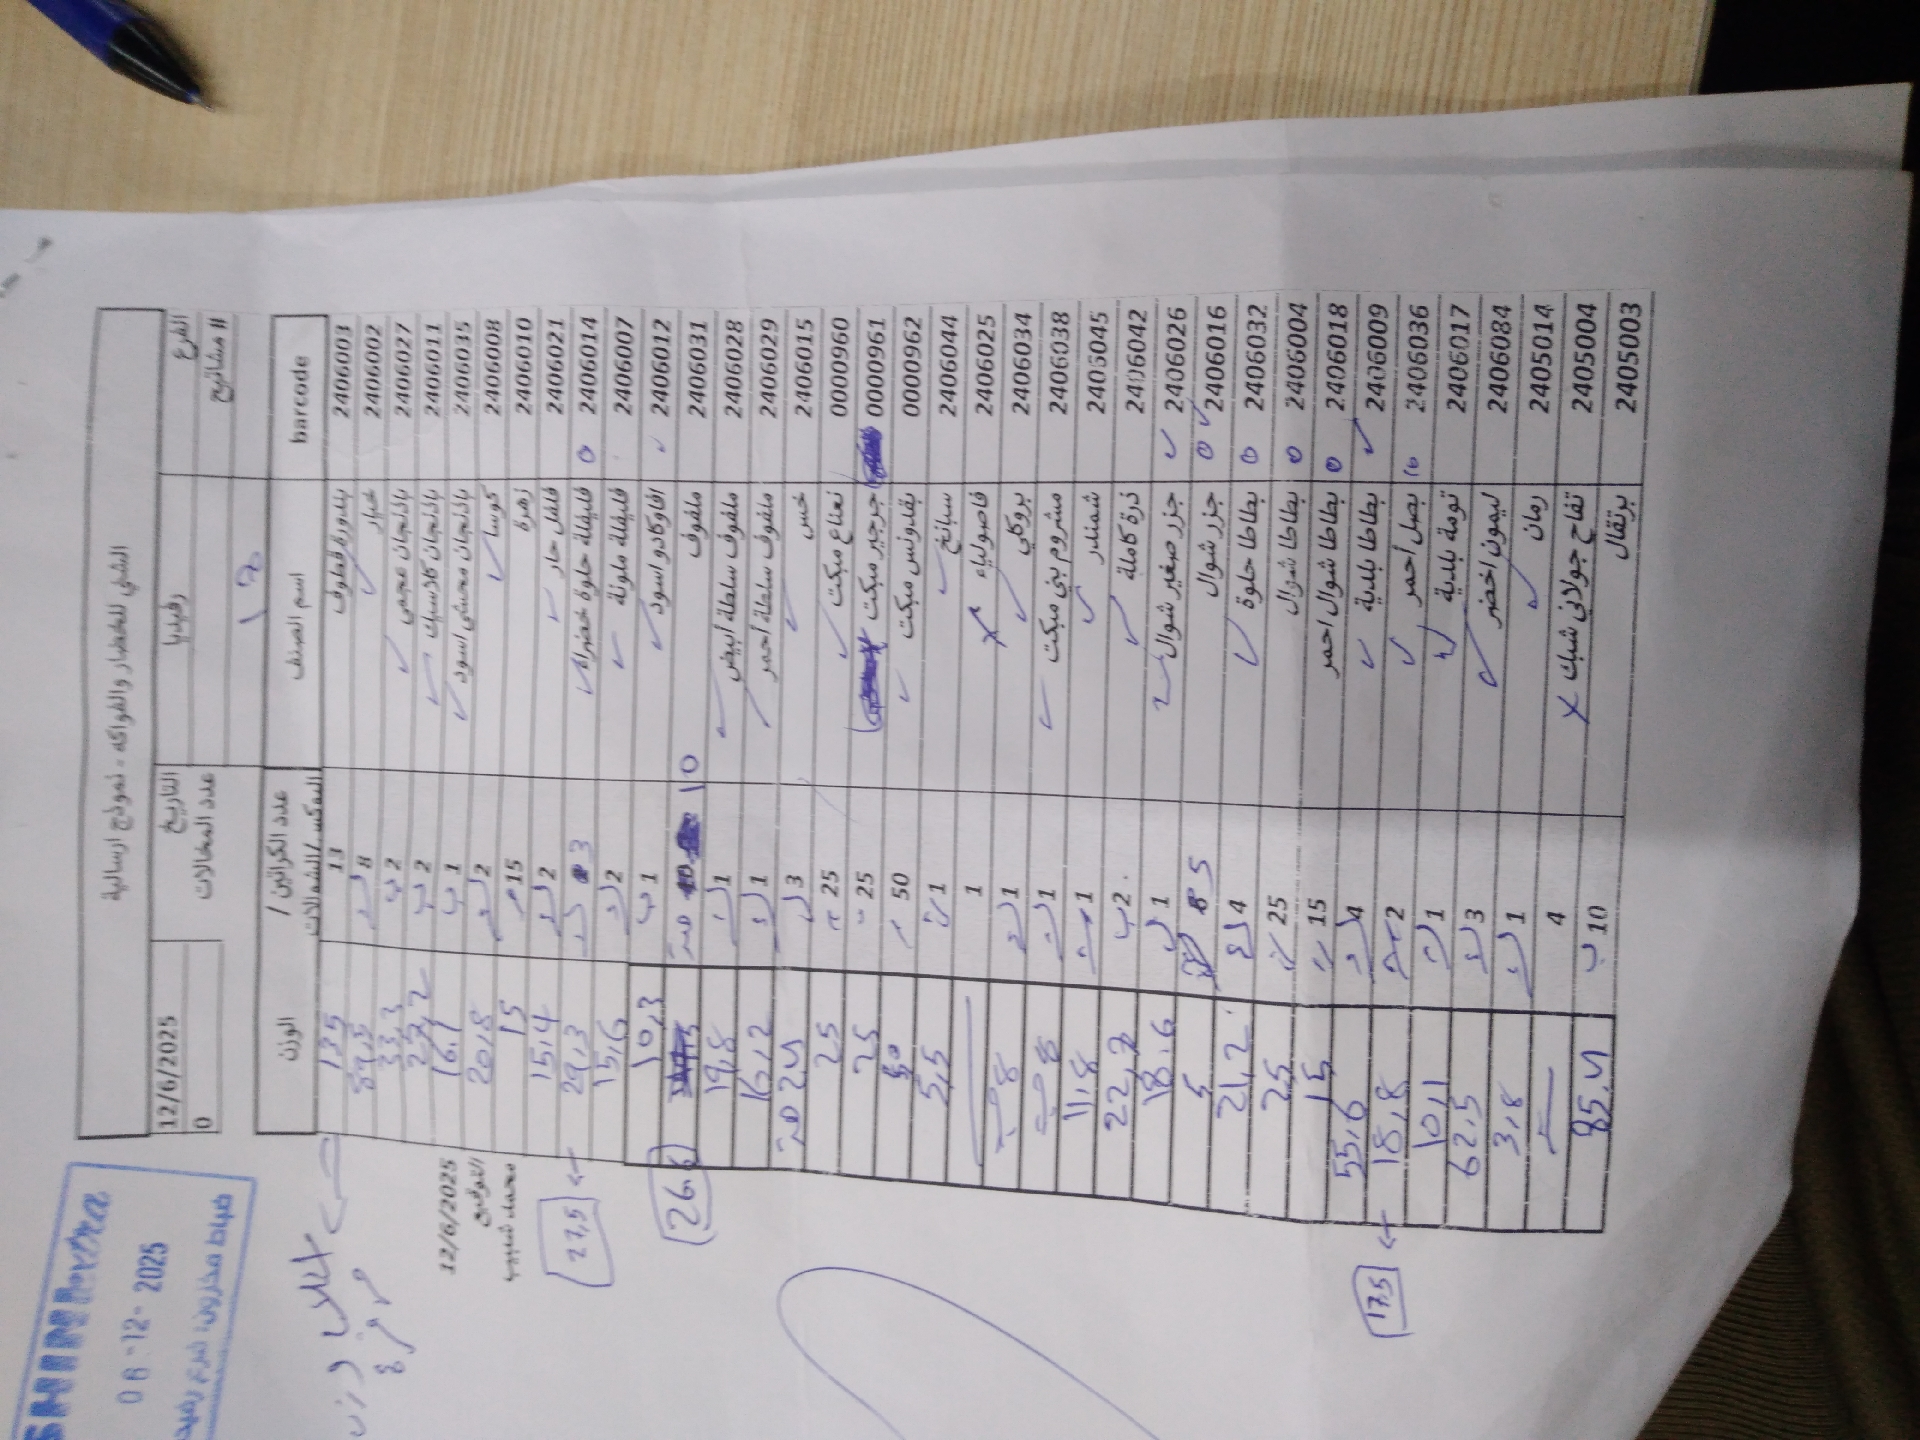 SHINI extra
06-12-2025
الشني للخضار والفواكه - نموذج ارسالية
الفرع رفيديا التاريخ 12/6/2025
# مشاتيح عدد المخالات 0
12
barcode اسم الصنف عدد الكراتين / البوكس / الشوالات الوزن
2406003 بندورة قطوف 13 135
2406002 خيار 8 89,5
2406027 باذنجان عجمي 2 33,3
2406011 باذنجان كلاسيك 2 27,2
2406035 باذنجان محشي اسود 1 16,1
2406008 كوسا 2 20,8
2406010 زهرة 15 15
2406021 فلفل حار 2 15,4
2406014 فليفلة حلوة خضراء 3 29,3 ← 27,5
2406007 فليفلة ملونة 2 15,6
2406012 افاوكادو اسود 1 10,3
2406031 ملفوف 10 26.6
2406028 ملفوف سلطة أبيض 1 19,8
2406029 ملفوف سلطة أحمر 1 16,2
2406015 خس 3 24
0000960 نعناع مبكت 25 25
0000961 جرجير مبكت 25 25
0000962 بقدونس مبكت 50 50
2406044 سبانخ 1 5,5
2406025 فاصولياء 1
2406034 بروكلي 1 8
2406038 مشروم بني مبكت 1 8
2406045 شمندر 1 11,8
2406042 ذرة كاملة 2 22,7
2406026 جزر صغير شوال 1 18.6
2406016 جزر شوال 5 5
2406032 بطاطا حلوة 4 21,2
2406004 بطاطا شوال 25 25
2406018 بطاطا شوال احمر 15 15
2406009 بطاطا بلدية 4 55,6
2406036 بصل أحمر 2 18,8 ← 17.5
2406017 تومة بلدية 1 10,1
2406084 ليمون اخضر 3 62,5
2405014 رمان 1 3,8
2405004 تفاح جولاني شبك 4
2405003 برتقال 10 85,4
12/6/2025
التوقيع
محمد شبيب